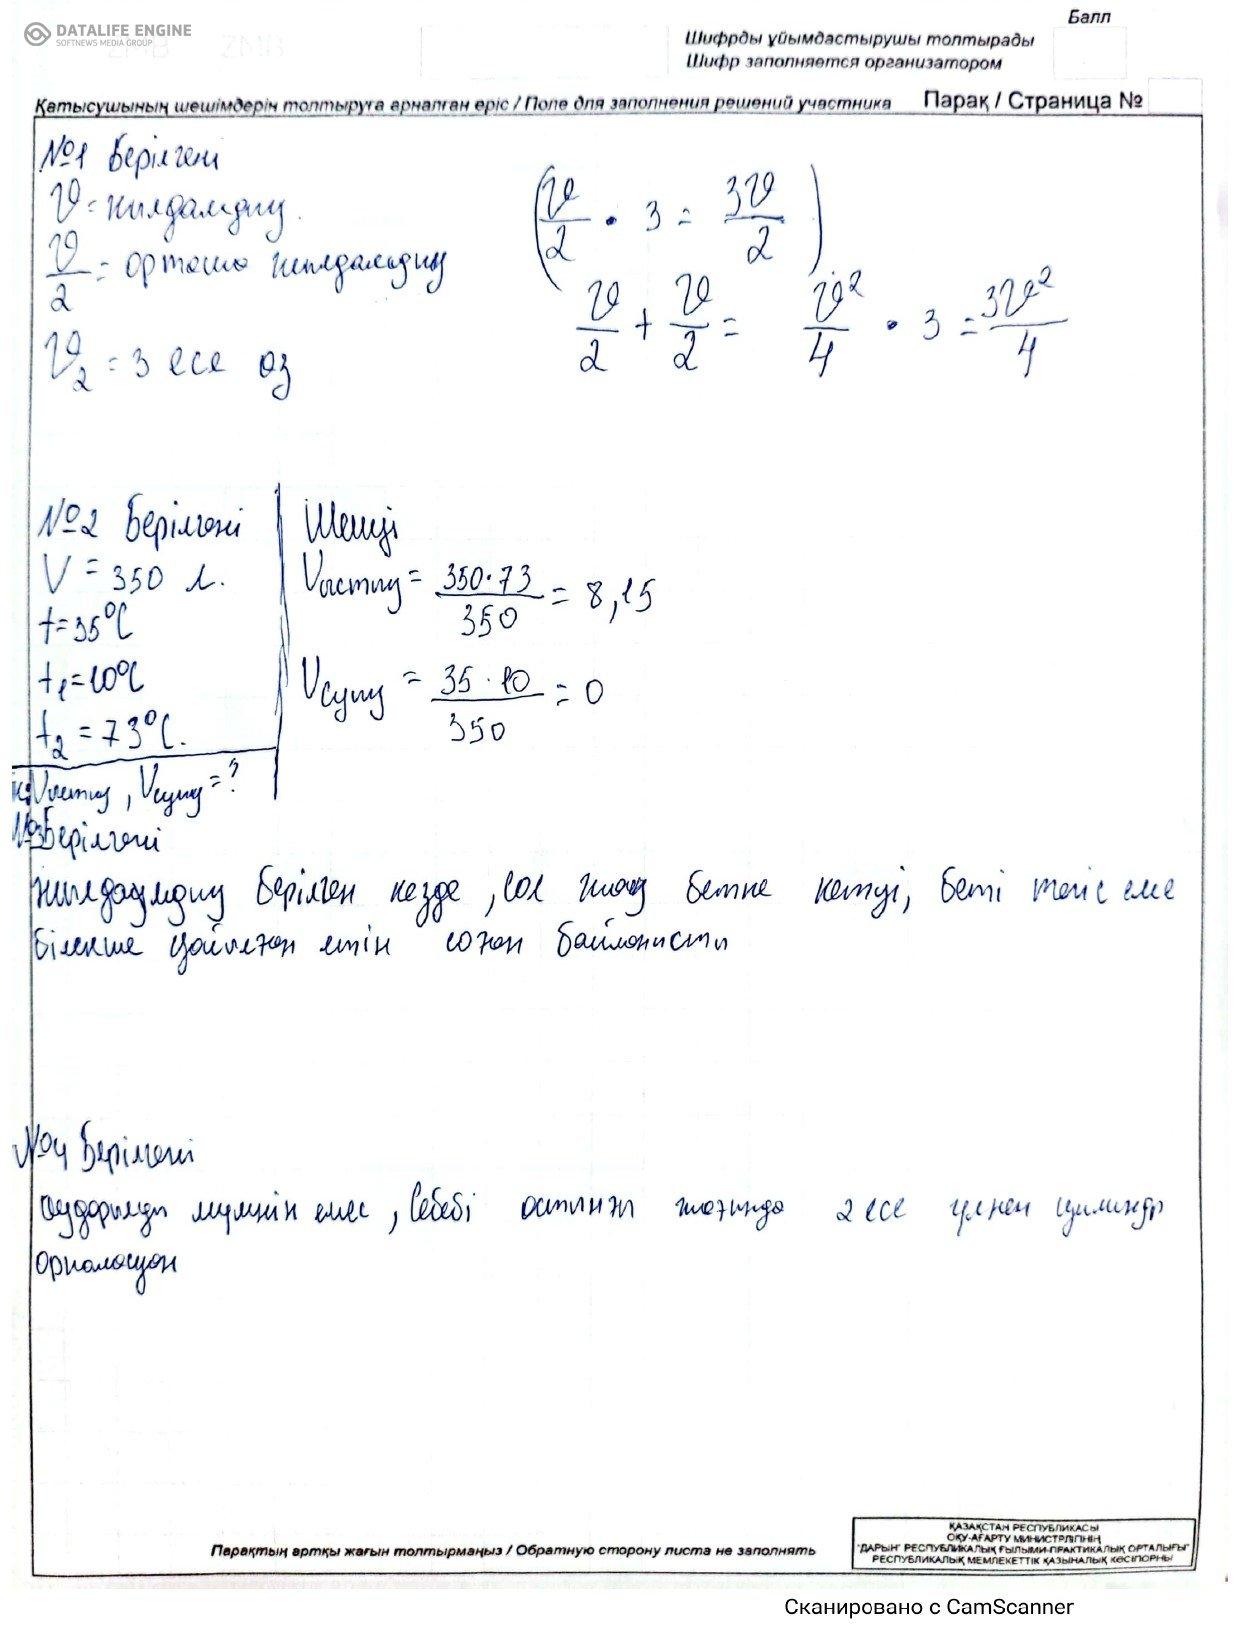 DATALIFE ENGINE
SOFTNEWS MEDIA GROUP
Балл
Шифрды ұйымдастырушы толтырады
Шифр заполняется организатором
Қатысушының шешімдерін толтыруға арналған өріс / Поле для заполнения решений участника Парақ / Страница №
№1 Берілгені
V = жылдамдық.
V/2 = орташа жылдамдық
V₂ = 3 есе аз
(V/2 · 3 = 3V/2)
V/2 + V/2 = V²/4 · 3 = 3V²/4
№2 Берілгені
V = 350 л.
t = 35°C
t₁ = 10°C
t₂ = 73°C.
Vыстық, Vсуық = ?
Шешуі
Vыстық = 350·73/350 = 8,15
Vсуық = 35·10/350 = 0
№3 Берілгені
жылдамдық берілген кезде, сол жақ бетке кетуі, беті тегіс емес
білекше қойылған
соған байланысты
№4 Берілгені
аударылуы мүмкін емес, себебі астыңғы жағында 2 есе үлкен цилиндр
орналасқан
Парақтың артқы жағын толтырмаңыз / Обратную сторону листа не заполнять
ҚАЗАҚСТАН РЕСПУБЛИКАСЫ
ОҚУ-АҒАРТУ МИНИСТРЛІГІНІҢ
"ДАРЫН" РЕСПУБЛИКАЛЫҚ ҒЫЛЫМИ-ПРАКТИКАЛЫҚ ОРТАЛЫҒЫ"
РЕСПУБЛИКАЛЫҚ МЕМЛЕКЕТТІК ҚАЗЫНАЛЫҚ КӘСІПОРНЫ
Сканировано с CamScanner